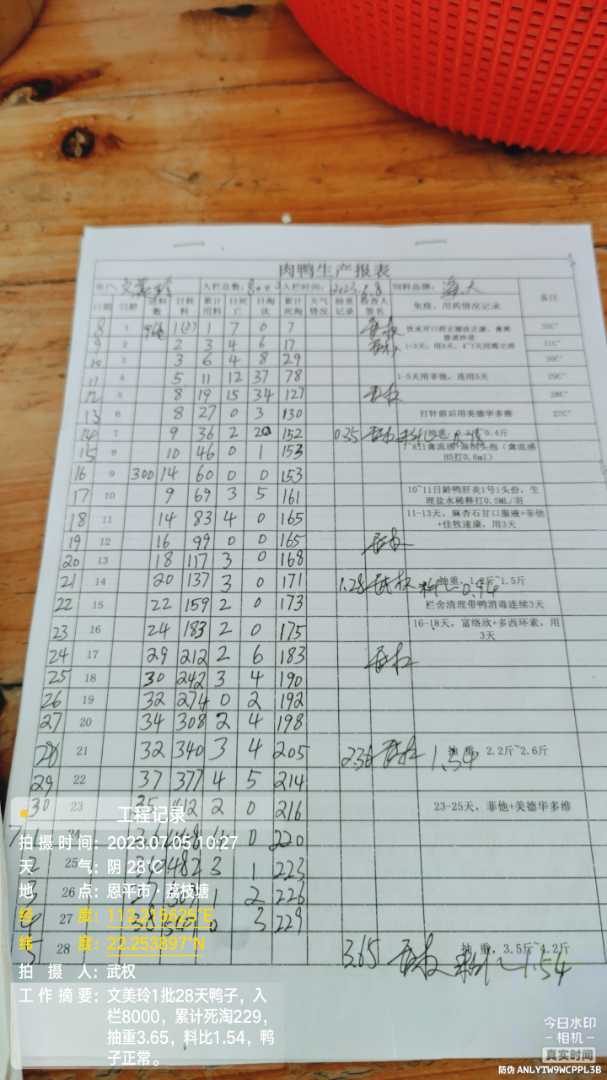 肉鸭生产报表
文美玲 入栏总数: 8000 入栏时间: 2023.6.8 饲料品牌: 海大
日期 日龄 进料数 日耗料 累计用料 日死亡 日淘汰 累计死淘 天气情况 抽重记录 检查人签名 免疫、用药情况记录 备注
8 1 1 1 7 0 7 武权 32C°
9 2 2 3 4 6 17 武权 1-3天, 31C°
10 3 3 6 4 8 29 30C°
11 4 5 11 12 37 78 1-5天用菲他,连用5天 29C°
12 5 8 19 15 34 127 武权 28C°
13 6 8 27 0 3 130 打针前后用美德华多维 27C°
14 7 9 36 2 20 152 0.35 武权
15 8 10 46 0 1 153 H5打0.6ml)
16 9 300 14 60 0 0 153
17 10 9 69 3 5 161 10~11日龄鸭肝炎1号1头份,生理盐水稀释打0.5ML/羽
18 11 14 83 4 0 165 11-13天,麻杏石甘口服液+菲他+佳牧速康,用3天
19 12 16 99 0 0 165 武权
20 13 18 117 3 0 168
21 14 20 137 3 0 171 1.28 武权 料比0.94 抽重, ~1.5斤
22 15 22 159 2 0 173 栏舍清理带鸭消毒连续3天
23 16 24 183 2 0 175 16-18天,富络欣+多西环素,用3天
24 17 29 212 2 6 183 武权
25 18 30 242 3 4 190
26 19 32 274 0 2 192
27 20 34 308 2 4 198
28 21 32 340 3 4 205 2.36 武权 1.54 抽重, 2.2斤~2.6斤
29 22 37 377 4 5 214
30 23 35 412 2 0 216 23-25天,菲他+美德华多维
7.1 24 0 220
2 25 482 3 1 223
3 26 1 2 226
4 27 0 3 229
5 28 3.65 武权 料比1.54 抽重, 3.5斤~4.2斤
工程记录
拍摄时间: 2023.07.05 10:27
天气: 阴 28℃
地点: 恩平市·荔枝塘
经度: 112.215625°E
纬度: 22.253897°N
拍摄人: 武权
工作摘要: 文美玲1批28天鸭子,入
栏8000,累计死淘229,
抽重3.65,料比1.54,鸭
子正常。
今日水印
-相机-
真实时间
防伪 ANLYTW9WCPPL3B